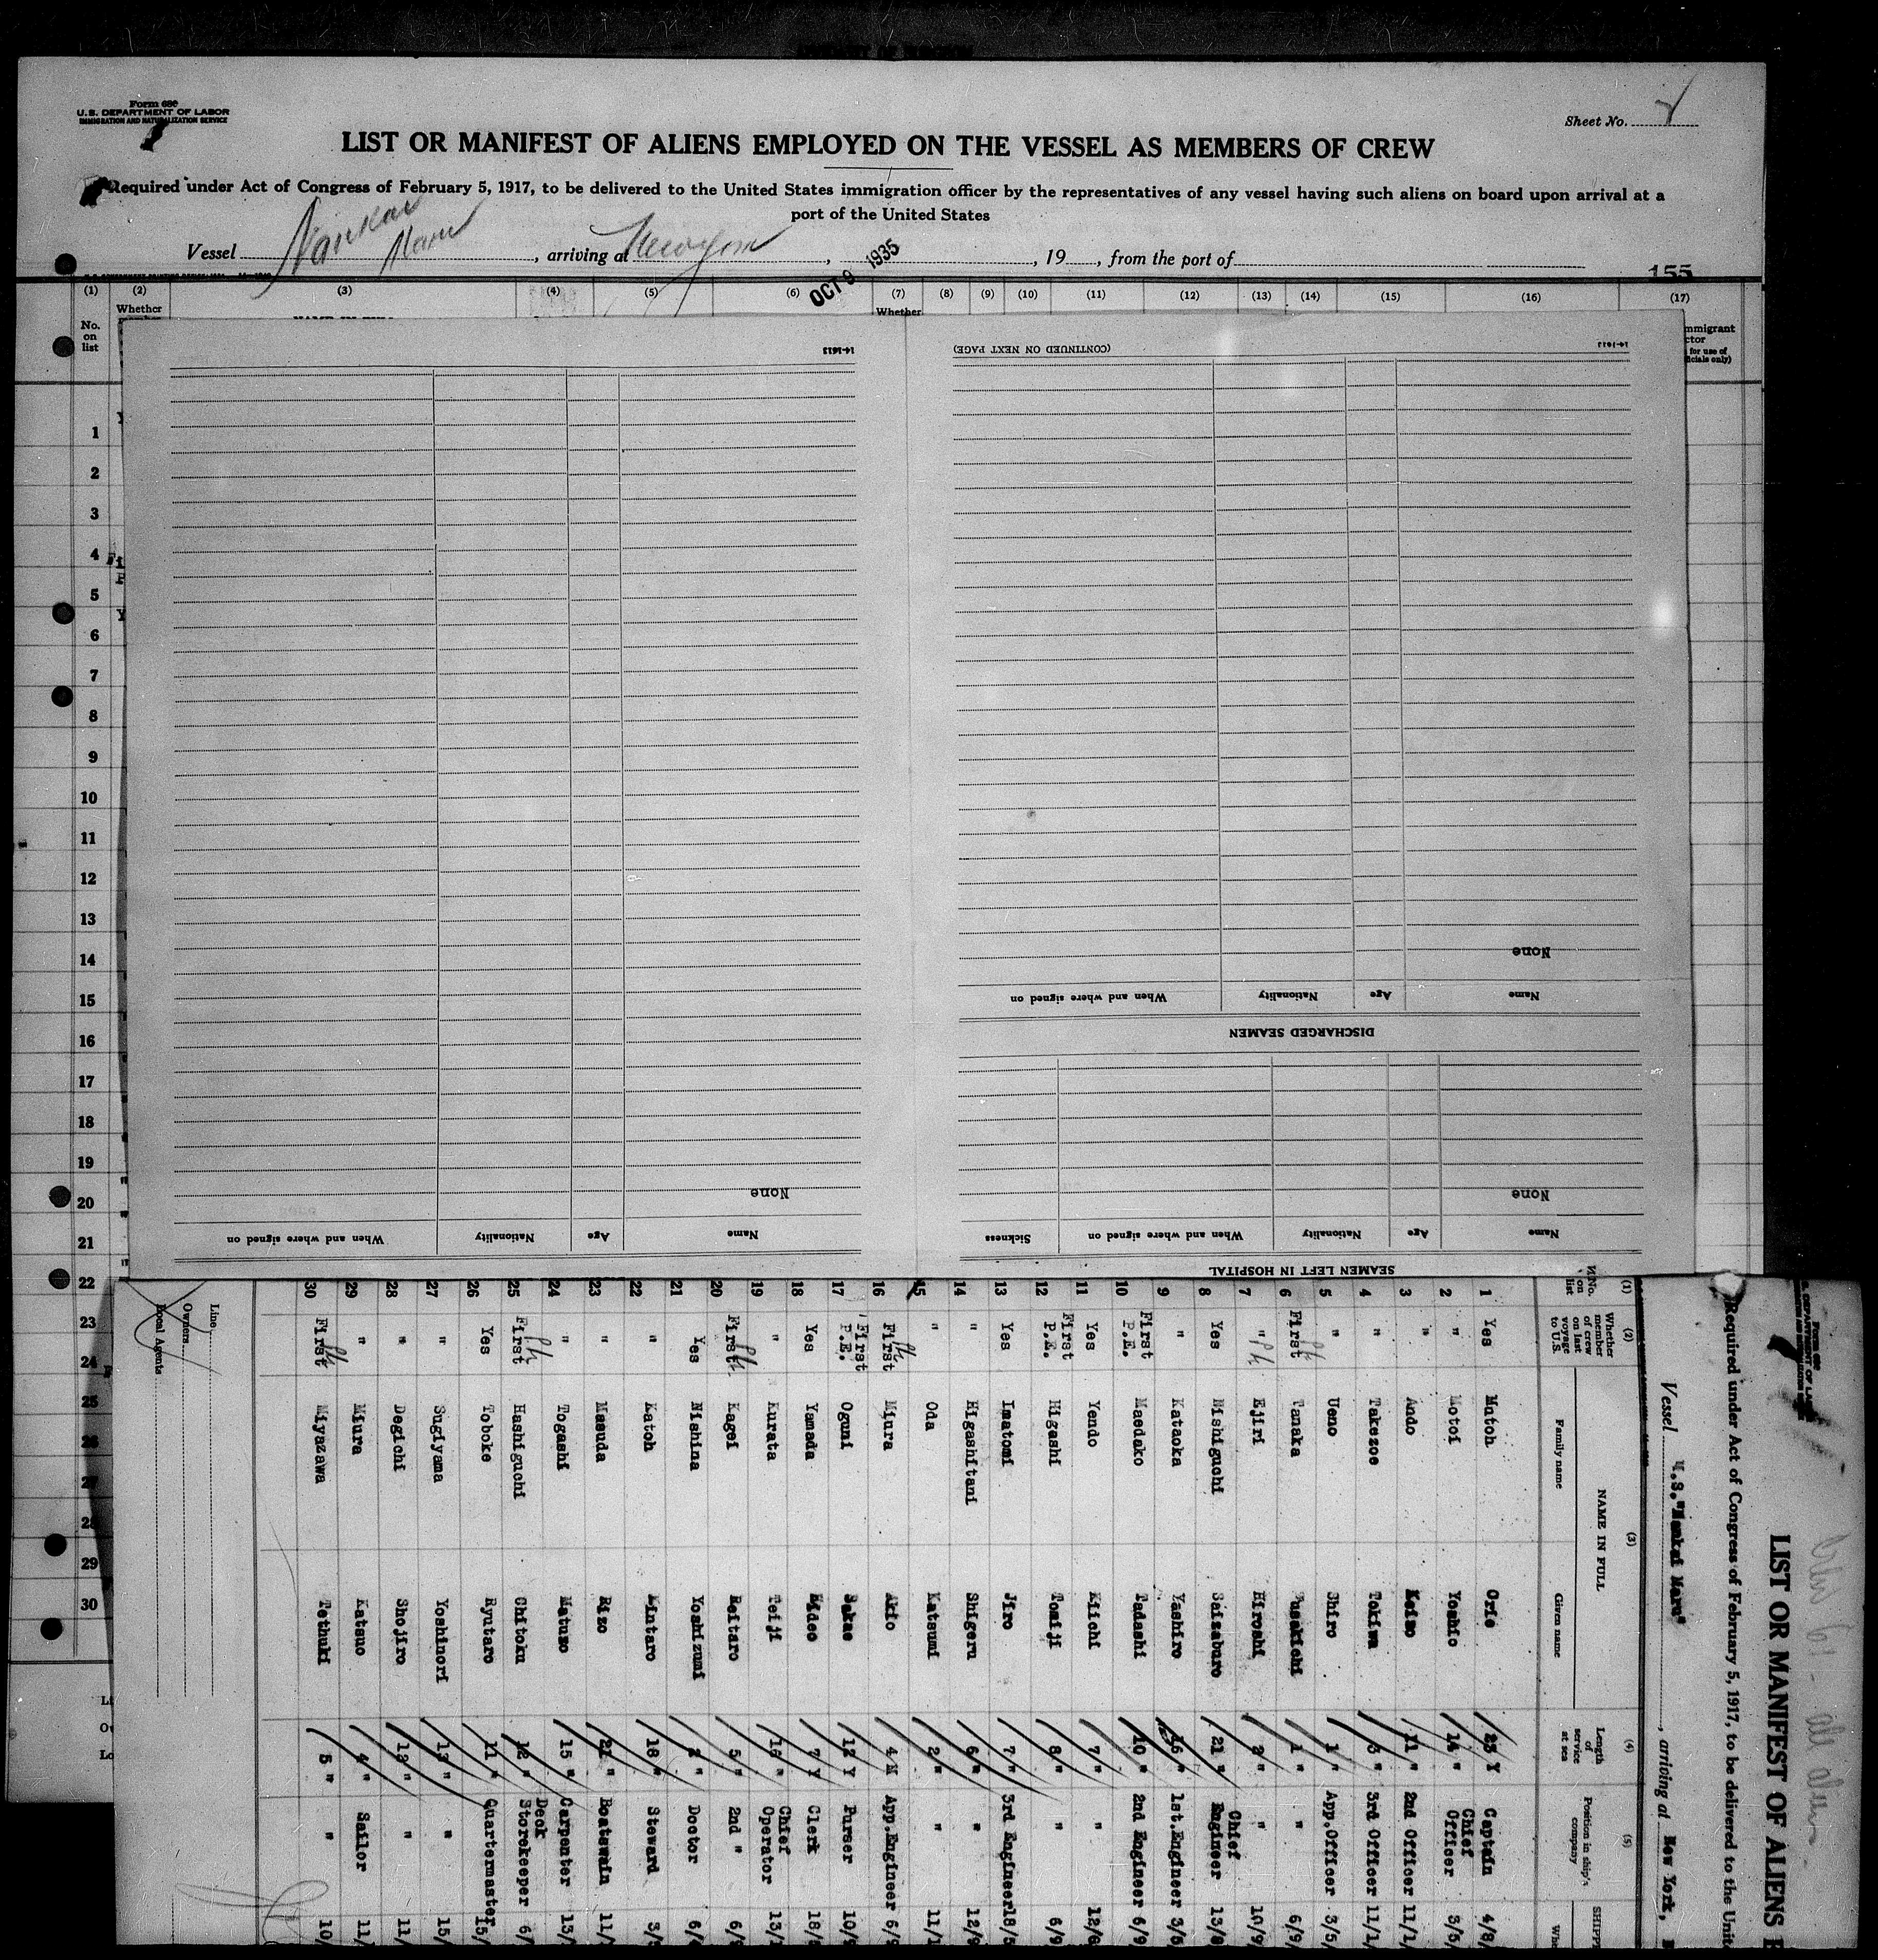 Form 680
U.S. DEPARTMENT OF LABOR
IMMIGRATION AND NATURALIZATION SERVICE
Sheet No.
LIST OR MANIFEST OF ALIENS EMPLOYED ON THE VESSEL AS MEMBERS OF CREW
Required under Act of Congress of February 5, 1917, to be delivered to the United States immigration officer by the representatives of any vessel having such aliens on board upon arrival at a
port of the United States
Vessel Nankai Maru, arriving at New York, OCT 9 1935, 19, from the port of
155
(1) (2) (3) (4) (5) (6) (7) (8) (9) (10) (11) (12) (13) (14) (15) (16) (17)
No. on list
Whether
Whether
1
2
3
4
5
6
7
8
9
10
11
12
13
14
15
16
17
18
19
20
21
22
23
24
25
26
27
28
29
30
SEAMEN LEFT IN HOSPITAL
Name Age Nationality When and where signed on Sickness
None
DISCHARGED SEAMEN
Name Age Nationality When and where signed on
None
(CONTINUED ON NEXT PAGE)
14-1613
Name Age Nationality When and where signed on
None
14-1613
Form 680
U.S. DEPARTMENT OF LABOR
LIST OR MANIFEST OF ALIENS
Required under Act of Congress of February 5, 1917, to be delivered to the
Vessel M.S."Nankai Maru", arriving at New York,
(1) (2) (3) (4) (5)
No. on list
Whether member of crew on last voyage to U.S.
NAME IN FULL
Family name
Given name
Length of service at sea
Position in ship's company
1 Yes Mutoh Orie 23 Y Captain 4/8/
2 " Motoi Yoshio 14 " Chief Officer 3/5/
3 " Ando Keizo 11 " 2nd Officer 11/1/
4 " Takezoe Tokiwa 3 " 3rd Officer 11/1/
5 " Ueno Shiro 1 " App.Officer 3/5/
6 First Tanaka 1 " " 6/9/
7 " Ejiri Hiroshi 2 " " 10/9/
8 Yes Nishiguchi Seizaburo 21 " Chief Engineer 13/
9 " Kataoka Yashiro 16 " 1st.Engineer 3/5
10 First P.E. Maedako Tadashi 10 " 2nd Engineer 6/9
11 Yes Yendo Kiichi 7 " " 12/
12 First P.E. Higashi Tomiji 8 " " 6/9
13 Yes Imatomi Jiro 7 " 3rd Engineer 18/5
14 " Higashitani Shigeru 6 " " 12/9
15 " Oda Katsumi 2 " " 11/1
16 First Miura Akio 4 M App.Engineer 6/9
17 First P.E. Oguni Sakae 12 Y Purser 10/9
18 Yes Yamada Hideo 7 Y Clerk 18/
19 " Kurata Teiji 15 " Chief Operator 13/1
20 First Kagei Reitaro 5 " 2nd " 6/
21 Yes Nishina Yoshizumi " Doctor 6/
22 " Katoh Kintaro 18 " Steward 3/
23 " Masuda Rizo 21 " Boatswain 11/
24 " Togashi Matuzo 15 " Carpenter 13/
25 First Hashiguchi Chitoku 12 " Deck Storekeeper 6/
26 Yes Toboke Ryutaro 11 " Quartermaster 15/
27 " Sugiyama Yoshinori 13 " " 15/
28 " Degichi Shojiro 13 " " 11/
29 " Miura Katsuo 4 " Sailor 11/
30 First Miyazawa Tethuki 5 " " 10/
Line
Owners
Local Agents